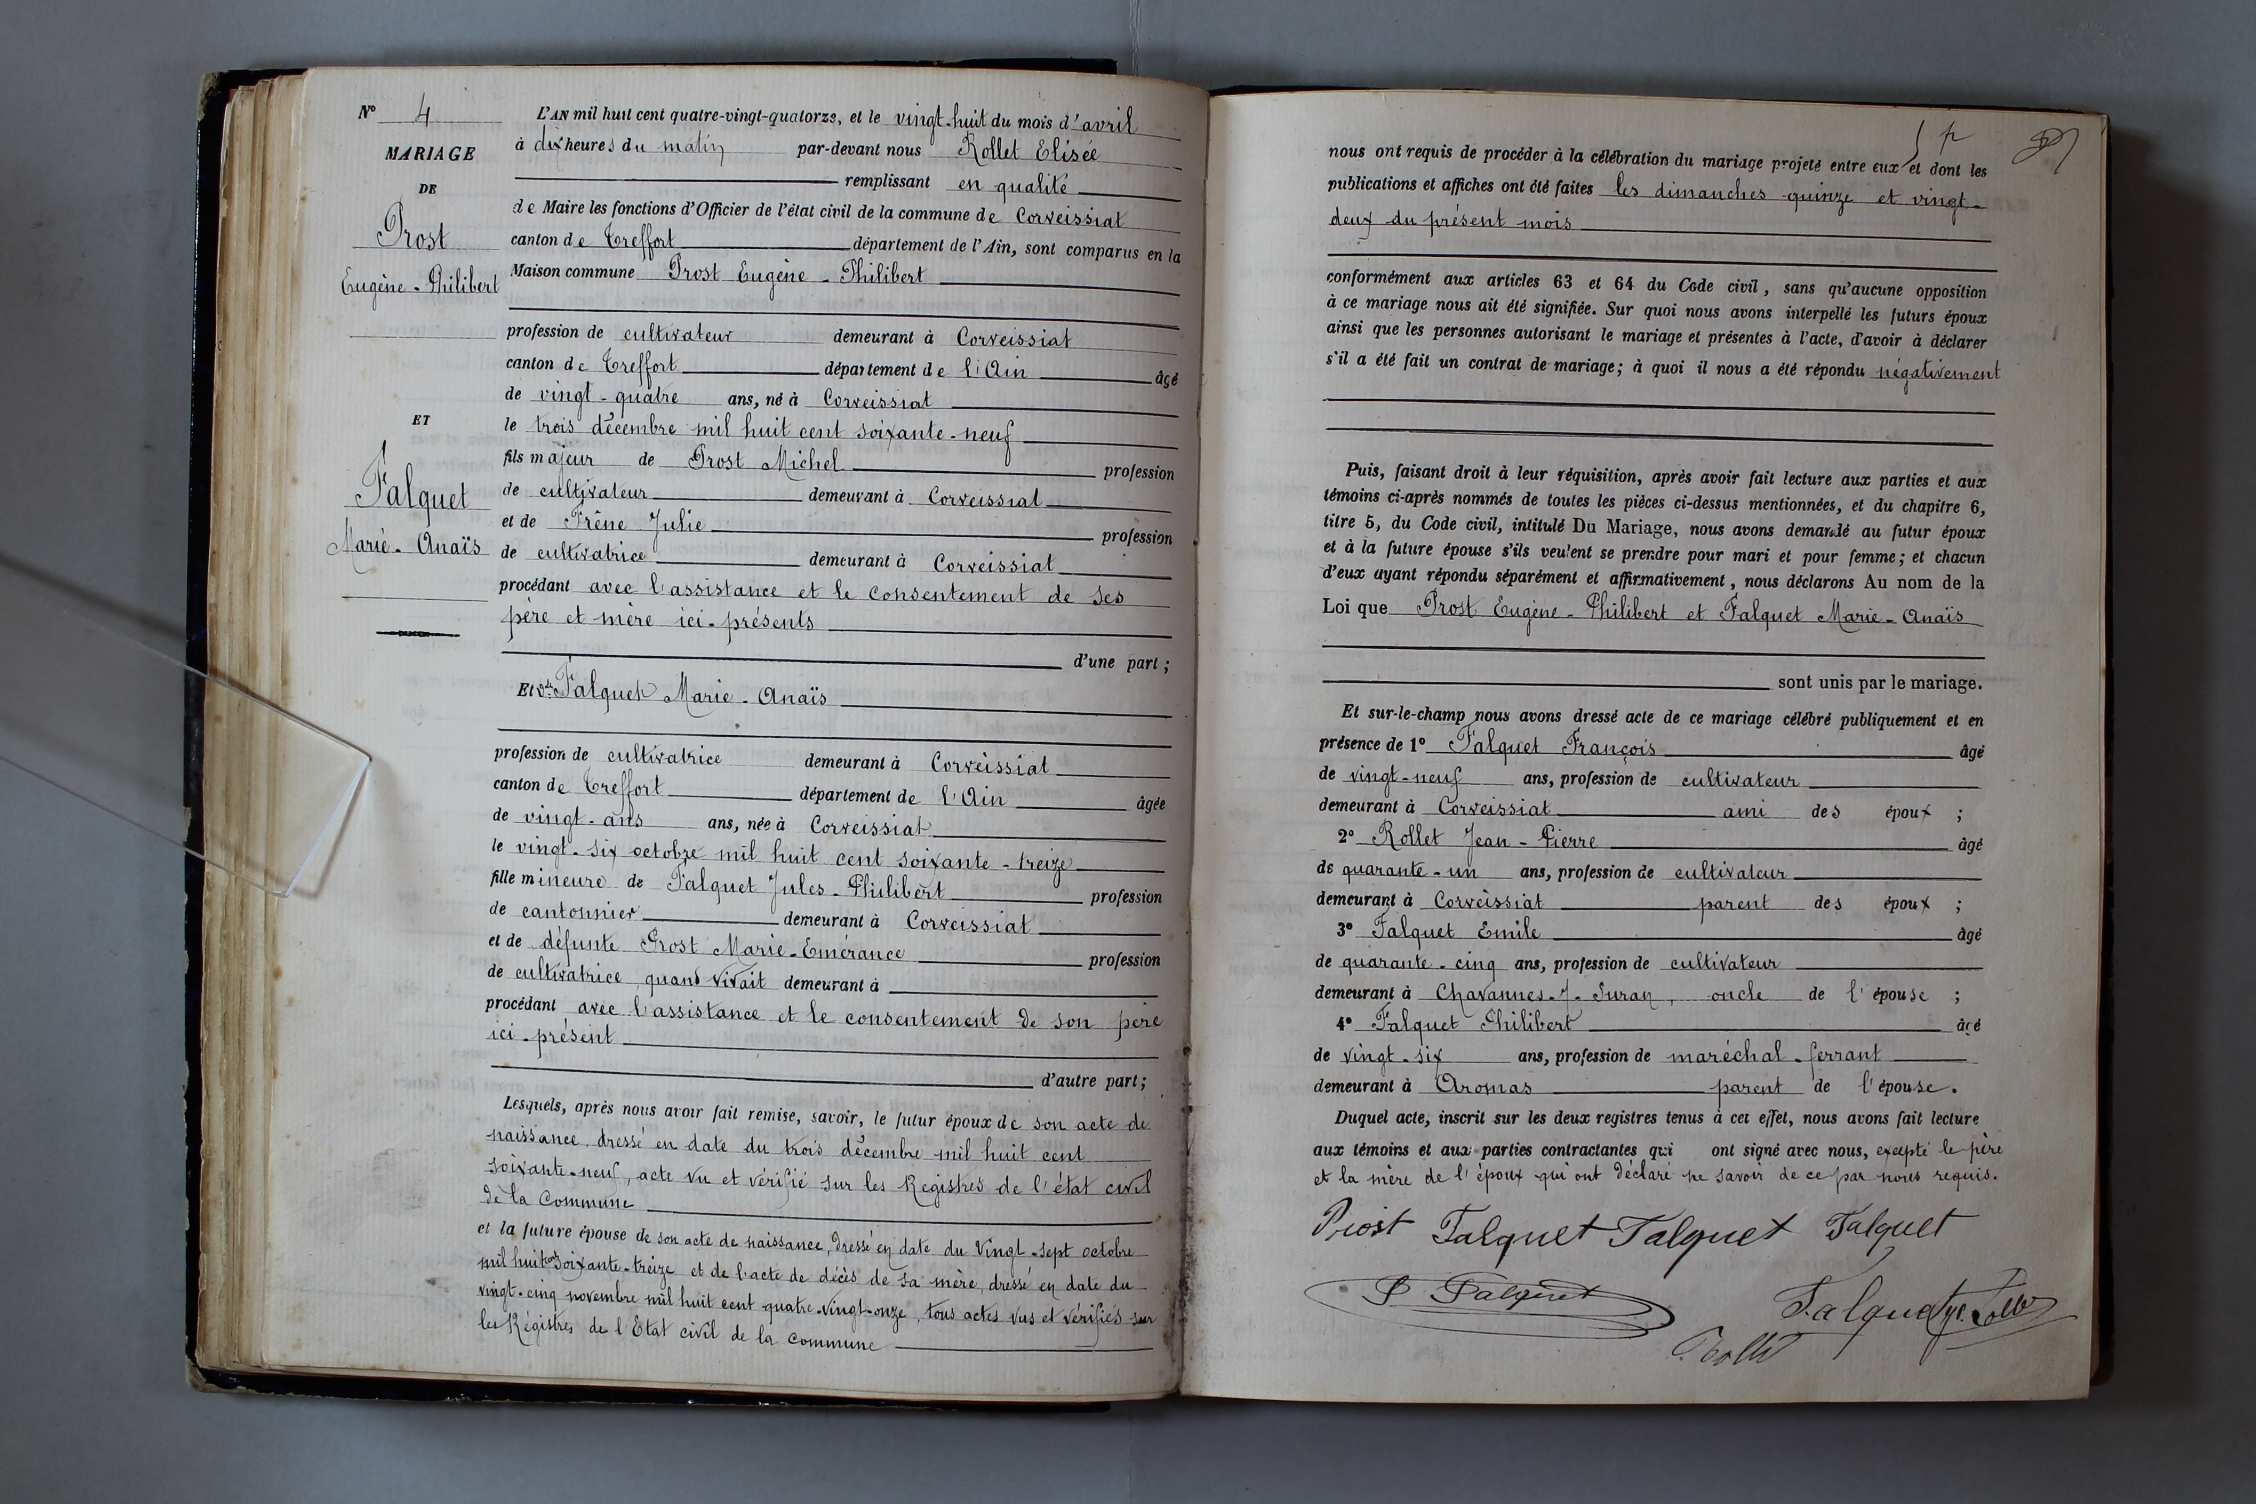 N° 4
MARIAGE
DE
Prost
Eugène-Philibert
ET
Falquet
Marie-Anaïs
L'AN mil huit cent quatre-vingt-quatorze, et le vingt-huit du mois d'avril
à dix heures du matin par-devant nous Rollet Elisée
remplissant en qualité
de Maire les fonctions d'Officier de l'état civil de la commune de Corveissiat
canton de Treffort département de l'Ain, sont comparus en la
Maison commune Prost Eugène-Philibert
profession de cultivateur demeurant à Corveissiat
canton de Treffort département de l'Ain âgé
de vingt-quatre ans, né à Corveissiat
le trois décembre mil huit cent soixante-neuf
fils majeur de Prost Michel profession
de cultivateur demeurant à Corveissiat
et de Frêne Julie profession
de cultivatrice demeurant à Corveissiat
procédant avec l'assistance et le consentement de ses
père et mère ici-présents
d'une part;
Et dlle Falquet Marie-Anaïs
profession de cultivatrice demeurant à Corveissiat
canton de Treffort département de l'Ain âgée
de vingt-ans ans, née à Corveissiat
le vingt-six octobre mil huit cent soixante-treize
fille mineure de Falquet Jules-Philibert profession
de cantonnier demeurant à Corveissiat
et de défunte Prost Marie-Emérance profession
de cultivatrice, quand vivait demeurant à
procédant avec l'assistance et le consentement de son père
ici-présent
d'autre part;
Lesquels, après nous avoir fait remise, savoir, le futur époux de son acte de
naissance, dressé en date du trois décembre mil huit cent
soixante-neuf, acte vu et vérifié sur les Registres de l'état civil
de la Commune
et la future épouse de son acte de naissance, dressé en date du vingt-sept octobre
mil huit cent soixante-treize et de l'acte de décès de sa mère, dressé en date du
vingt-cinq novembre mil huit cent quatre-vingt-onze, tous actes vus et vérifiés sur
les Régistres de l'Etat civil de la commune
nous ont requis de procéder à la célébration du mariage projeté entre eux et dont les
publications et affiches ont été faites les dimanches quinze et vingt-
deux du présent mois
conformément aux articles 63 et 64 du Code civil, sans qu'aucune opposition
à ce mariage nous ait été signifiée. Sur quoi nous avons interpellé les futurs époux
ainsi que les personnes autorisant le mariage et présentes à l'acte, d'avoir à déclarer
s'il a été fait un contrat de mariage; à quoi il nous a été répondu négativement
Puis, faisant droit à leur réquisition, après avoir fait lecture aux parties et aux
témoins ci-après nommés de toutes les pièces ci-dessus mentionnées, et du chapitre 6,
titre 5, du Code civil, intitulé Du Mariage, nous avons demandé au futur époux
et à la future épouse s'ils veulent se prendre pour mari et pour femme; et chacun
d'eux ayant répondu séparément et affirmativement, nous déclarons Au nom de la
Loi que Prost Eugène-Philibert et Falquet Marie-Anaïs
sont unis par le mariage.
Et sur-le-champ nous avons dressé acte de ce mariage célébré publiquement et en
présence de 1° Falquet François âgé
de vingt-neuf ans, profession de cultivateur
demeurant à Corveissiat ami des époux ;
2° Rollet Jean-Pierre âgé
de quarante-un ans, profession de cultivateur
demeurant à Corveissiat parent des époux ;
3° Falquet Emile âgé
de quarante-cinq ans, profession de cultivateur
demeurant à Chavannes-s-Suran, oncle de l'épouse ;
4° Falquet Philibert âgé
de vingt-six ans, profession de maréchal-ferrant
demeurant à Aromas parent de l'épouse.
Duquel acte, inscrit sur les deux registres tenus à cet effet, nous avons fait lecture
aux témoins et aux parties contractantes qui ont signé avec nous, excepté le père
et la mère de l'époux qui ont déclaré ne savoir de ce par nous requis.
Prost Falquet Falquet Falquet
P Falquet Falquet
Rollet